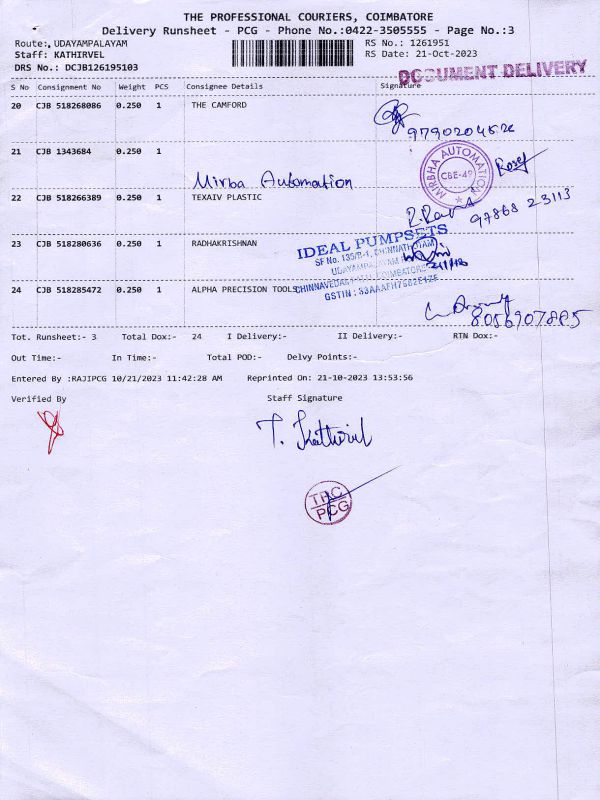 THE PROFESSIONAL COURIERS, COIMBATORE
Delivery Runsheet - PCG - Phone No.:0422-3505555 - Page No.:3
Route: UDAYAMPALAYAM RS No.: 1261951
Staff: KATHIRVEL RS Date: 21-Oct-2023
DRS No.: DCJB126195103
DOCUMENT DELIVERY
S No Consignment No Weight PCS Consignee Details Signature
20 CJB 518268086 0.250 1 THE CAMFORD
21 CJB 1343684 0.250 1
MIRBHA AUTOMATION
CBE-49
Mirba Automation
22 CJB 518266389 0.250 1 TEXAIV PLASTIC
97868 23113
23 CJB 518280636 0.250 1 RADHAKRISHNAN
IDEAL PUMPSETS
24 CJB 518285472 0.250 1 ALPHA PRECISION TOOLS
Tot. Runsheet:- 3 Total Dox:- 24 I Delivery:- II Delivery:- RTN Dox:-
Out Time:- In Time:- Total POD:- Delvy Points:-
Entered By :RAJIPCG 10/21/2023 11:42:28 AM Reprinted On: 21-10-2023 13:53:56
Verified By Staff Signature
T. Kathirvel
PCG